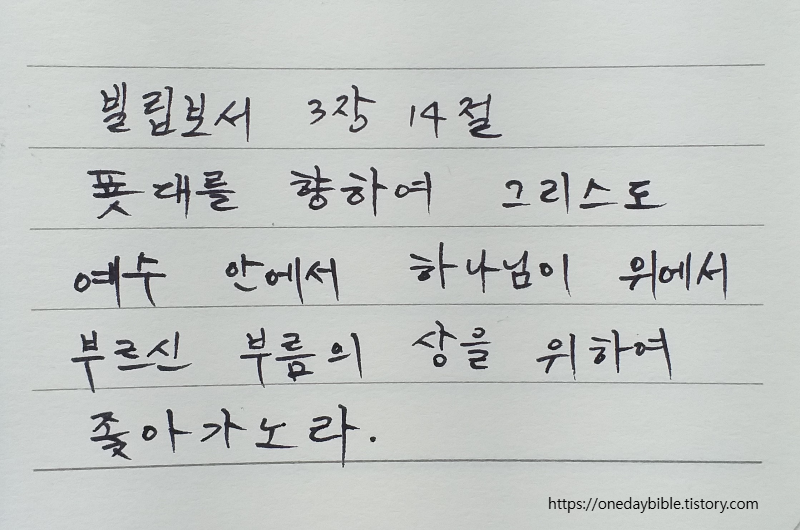 빌립보서 3장 14절
푯대를 향하여 그리스도
예수 안에서 하나님이 위에서
부르신 부름의 상을 위하여
좇아가노라.
https://onedaybible.tistory.com